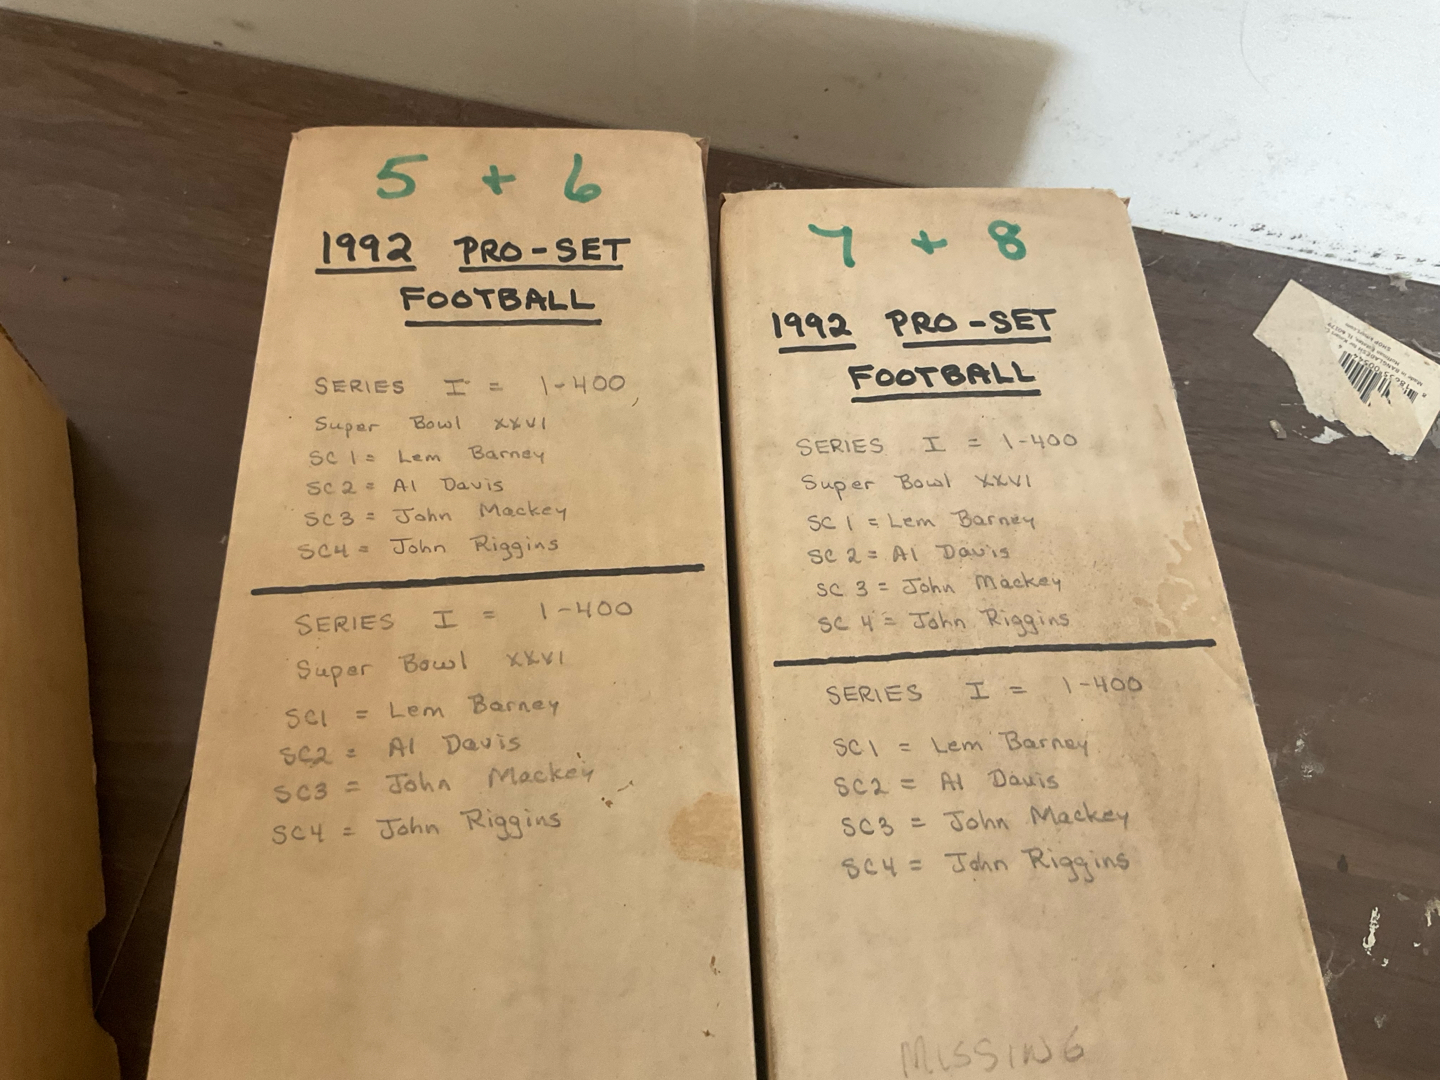 5 + 6
1992 PRO-SET
FOOTBALL
SERIES I = 1-400,
Super Bowl XXVI
SC1 = Lem Barney
SC2 = Al Davis
SC3 = John Mackey
SC4 = John Riggins
SERIES I = 1-400
Super Bowl XXVI
SC1 = Lem Barney
SC2 = Al Davis
SC3 = John Mackey
SC4 = John Riggins
7 + 8
1992 PRO-SET
FOOTBALL
SERIES I = 1-400
Super Bowl XXVI
SC1 = Lem Barney
SC2 = Al Davis
SC3 = John Mackey
SC4 = John Riggins
SERIES I = 1-400
SC1 = Lem Barney
SC2 = Al Davis
SC3 = John Mackey
SC4 = John Riggins
MISSING
Made in BANGLADESH